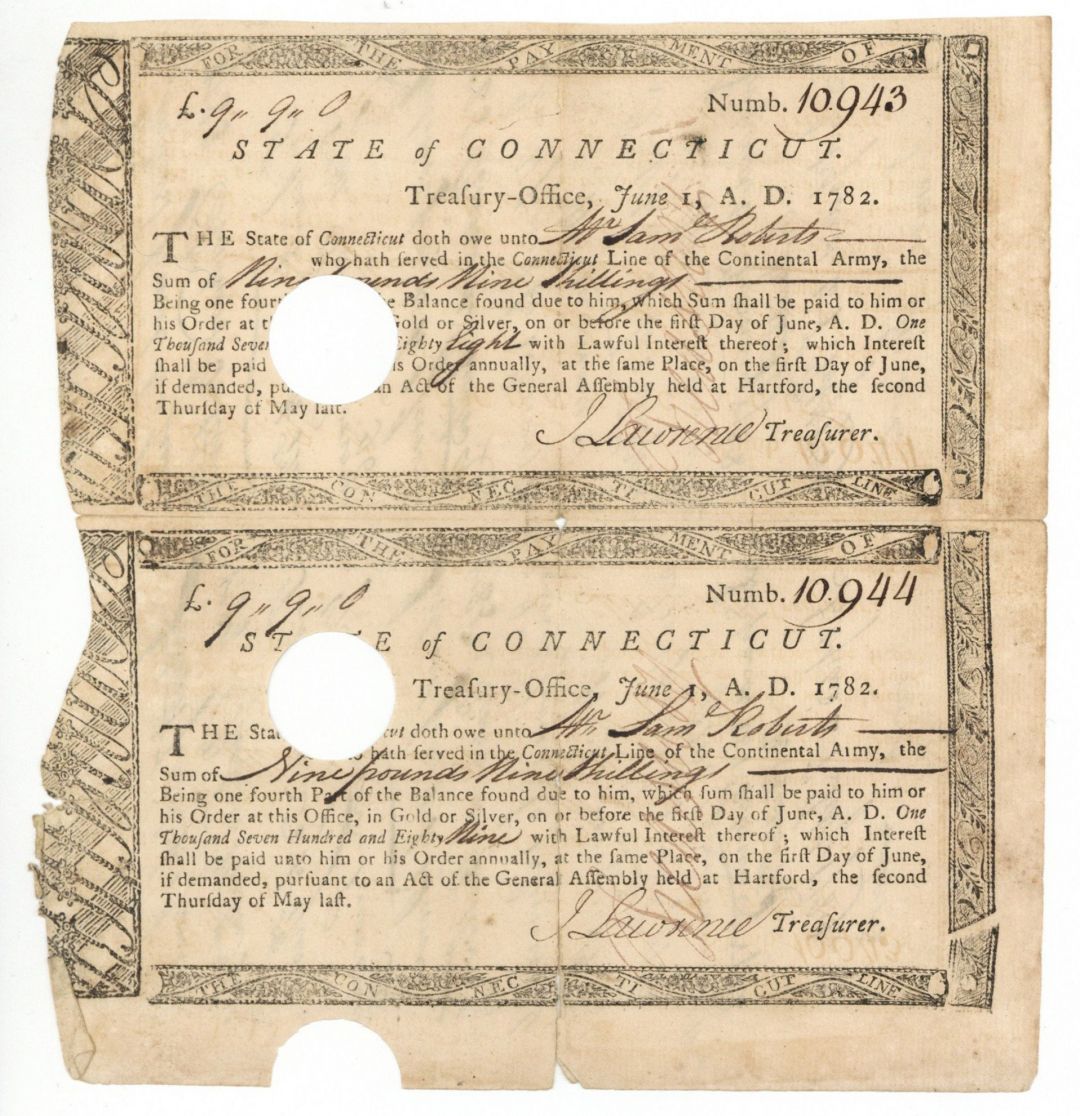 FOR THE PAY MENT OF
£. 9 " 9 " 0 Numb. 10.943
STATE of CONNECTICUT.
Treaſury-Office, June 1, A. D. 1782.
THE State of Connecticut doth owe unto Mr Sam Roberts
who hath ſerved in the Connecticut Line of the Continental Army, the
Sum of Nine pounds Nine Shillings
Being one fourt e Balance found due to him, which Sum ſhall be paid to him or
his Order at t Gold or Silver, on or before the firſt Day of June, A. D. One
Thouſand Seve Eighty Eight with Lawful Intereſt thereof; which Intereſt
ſhall be paid is Order annually, at the ſame Place, on the firſt Day of June,
if demanded, pu an Act of the General Aſſembly held at Hartford, the ſecond
Thurſday of May laſt.
J Lawrence Treaſurer.
THE CON NEC TI CUT LINE
FOR THE PAY MENT OF
£. 9 " 9 " 0 Numb. 10.944
ST E of CONNECTICUT.
Treaſury-Office, June 1, A. D. 1782.
THE Sta cut doth owe unto Mr Sam Roberts
o hath ſerved in the Connecticut Line of the Continental Army, the
Sum of Nine pounds Nine Shillings
Being one fourth Part of the Balance found due to him, which ſum ſhall be paid to him or
his Order at this Office, in Gold or Silver, on or before the firſt Day of June, A. D. One
Thouſand Seven Hundred and Eighty Nine with Lawful Intereſt thereof; which Intereſt
ſhall be paid unto him or his Order annually, at the ſame Place, on the firſt Day of June,
if demanded, purſuant to an Act of the General Aſſembly held at Hartford, the ſecond
Thurſday of May laſt.
J Lawrence Treaſurer.
THE CON NEC TI CUT LINE.